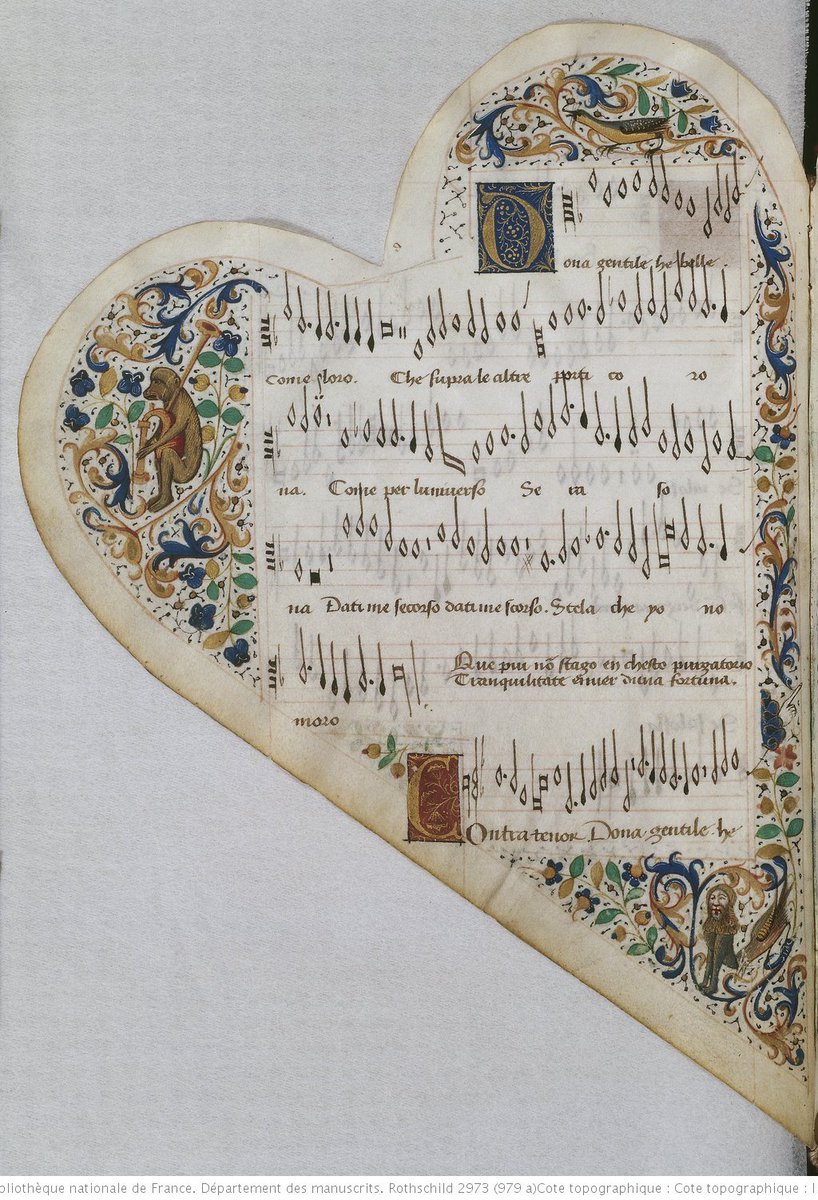 Dona gentile he belle.
come sloro. Che supra le altre porti co ro
na. Come per luniverso Se ra so
na Dati me secorso dati me scorso. Stela che yo no
Que piu nõ stago en chesto purgatorio
Tranquilitate
moro
Contratenor Dona gentile he
Bibliothèque nationale de France. Département des manuscrits. Rothschild 2973 (979 a)Cote topographique : Cote topographique : I